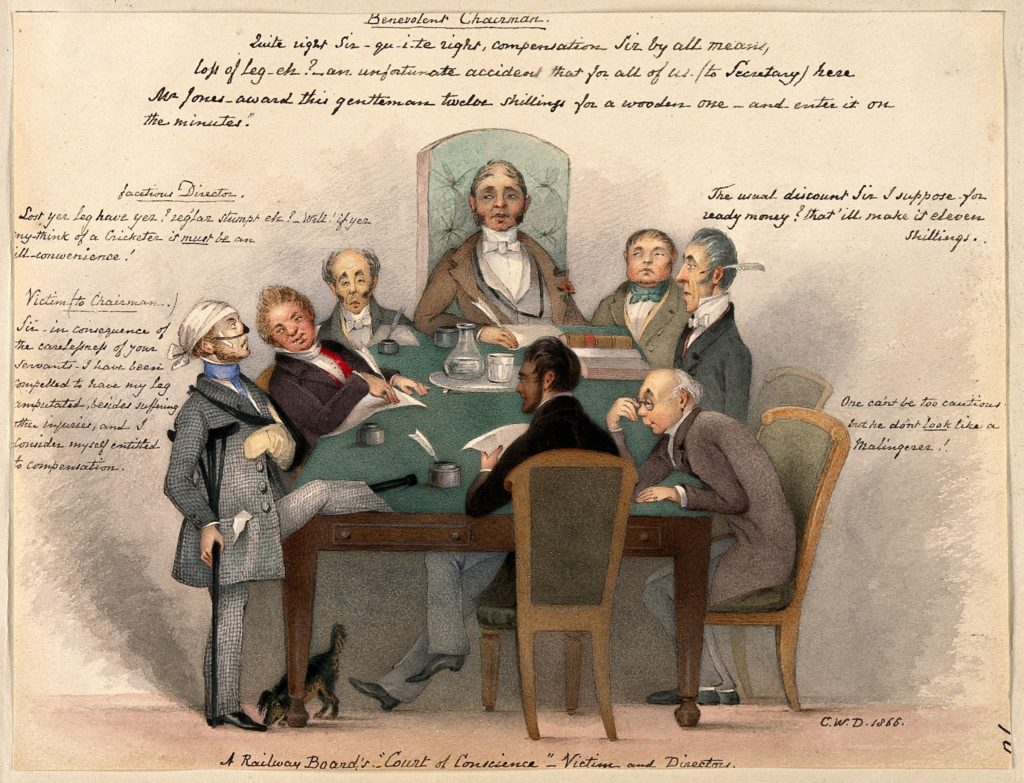 Benevolent Chairman.
Quite right Sir - qu-i-te right, compensation Sir by all means,
loss of leg - eh? - an unfortunate accident that for all of us. (to Secretary) here
Mr Jones - award this gentleman twelve shillings for a wooden one - and enter it on
the minutes."
facetious Director.
Lost yer leg have yer? reg'lar stumpt eh? - Well! if yer
my-think of a Cricketer it must be an
ill-convenience!
The usual discount Sir I suppose - for
ready money? that'ill make it eleven
shillings..
Victim (to Chairman.)
Sir - in consequence of
the carelessness of your
servants - I have been
compelled to have my leg
amputated, besides suffering
other injuries, and I
consider myself entitled
to compensation.
One cant be too cautious
but he dont look like a
Malingerer!
C.W.D. 1866.
A Railway Board's "Court of Conscience" - Victim and Directors.